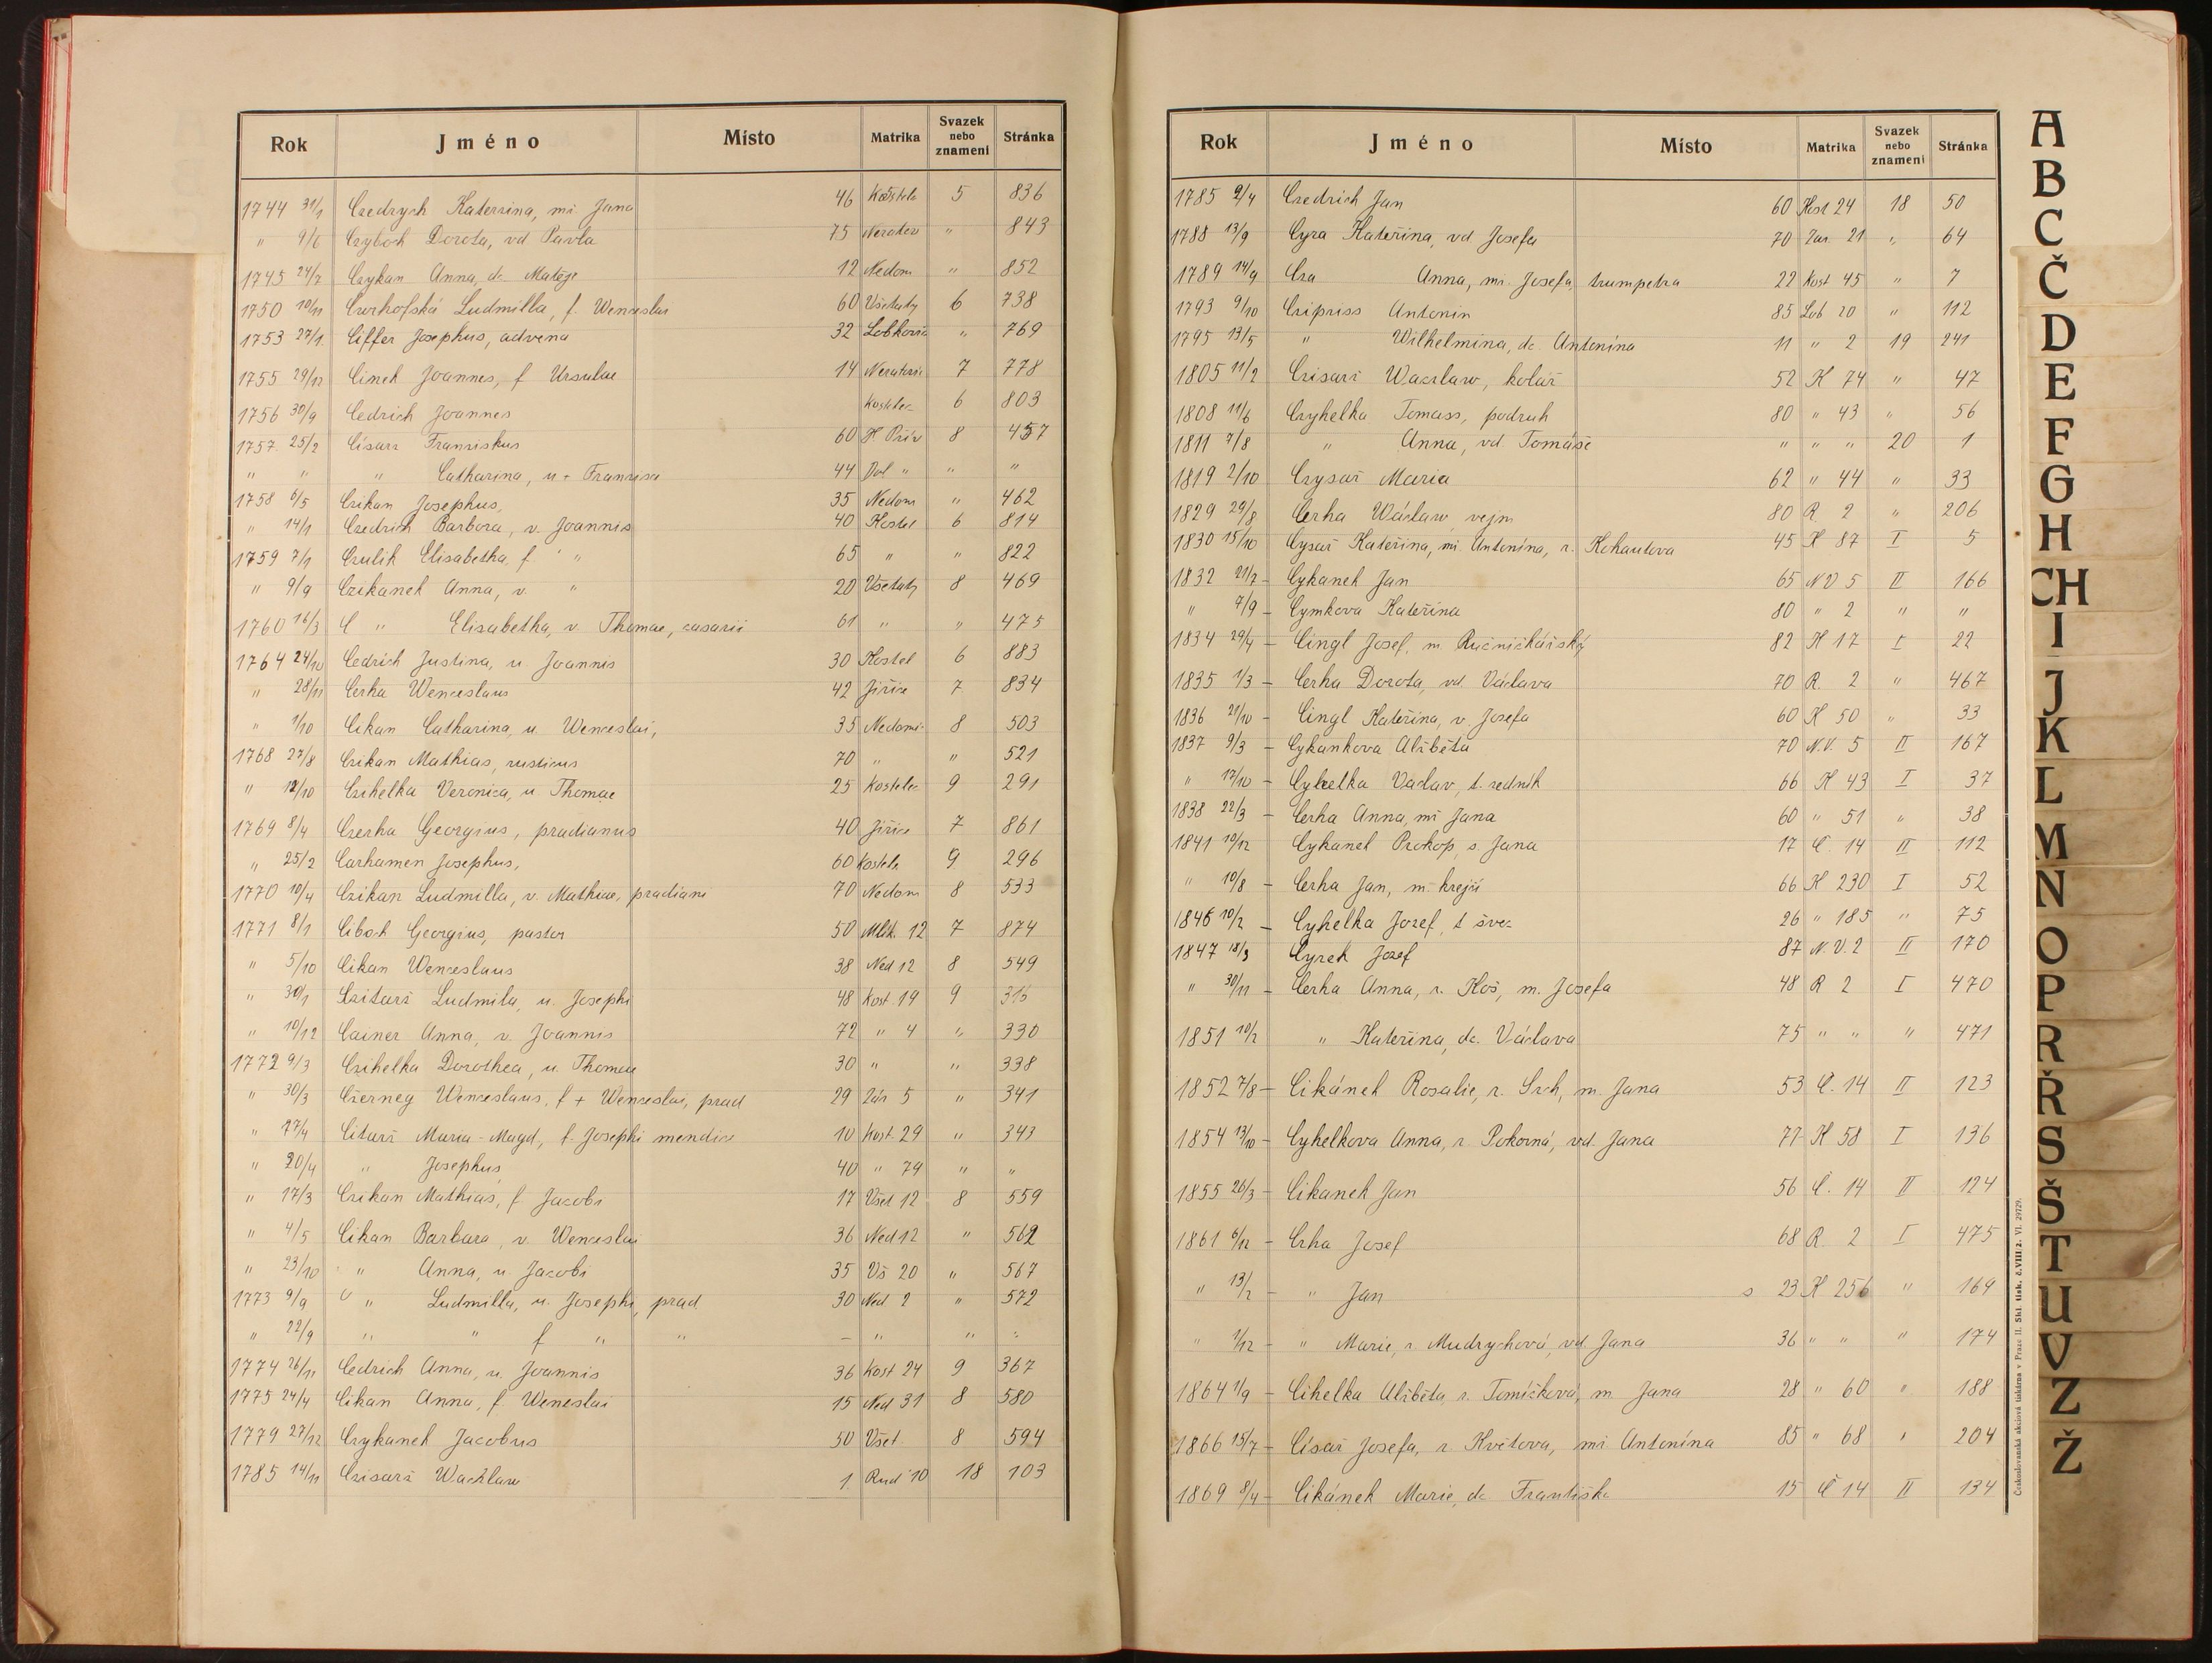 Rok Jméno Místo Matrika Svazek nebo znamení Stránka
1744 31/1 Czedrych Katerzina, mž Jana 46 Kostele 5 836
" 9/6 Czyboch Dorota, vd Pavla 75 Neratov " 843
1745 24/7 Czykan Anna, dc. Matěje 12 Nedom " 852
1750 10/11 Ludmilla, f. Wenceslai 60 Všetaty 6 738
1753 27/1 Ciffer Josephus, advena 32 Lobkovic " 769
1755 29/12 Cinek Joannes, f Ursulae 14 Neratovic 7 778
1756 30/9 Cedrich Joannes Kostelec 6 803
1757 25/2 Císarz Franciskus 60 K Přív 8 457
" " " Catharina, u + Francisci 44 " " "
1758 6/5 Czikan Josephus, 35 Nedom " 462
" 14/1 Czedrich Barbora, v. Joannis 40 Kostel 6 814
1759 7/1 Czulik Elisabetha, f " " 65 " " 822
" 9/9 Czikanek Anna, v. " 20 Všetaty 8 469
1760 16/3 C " Elisabetha, v. Thomae, casarii 61 " " 475
1764 24/10 Cedrich Justina, u Joannis 30 Kostel 6 883
" 28/11 Cerha Wenceslaus 42 Jiřice 7 834
" 1/10 Cikan Catharina, u. Wenceslai, 35 Nedomi 8 503
1768 27/8 Czikan Mathias, rusticus 70 " " 521
" 12/10 Czihelka Veronica, u Thomae 25 Kostelec 9 291
1769 8/4 Czerha Georgius, pradianus 40 Jiřice 7 861
" 25/2 Carhamen Josephus, 60 Kostele 9 296
1770 10/4 Czikan Ludmilla, v. Mathiae, pradiani 70 Nedom 8 533
1771 8/1 Ciboch Georgius, pastor 50 Mlék. 12 7 874
" 5/10 Cikan Wenceslaus 38 Ned 12 8 549
" 30/1 Czitarz Ludmila, u. Josephi 48 Kost. 19 9 315
" 10/12 Cainer Anna, v. Joannis 72 " 4 " 330
1772 9/3 Czihelka Dorothea, u. Thomae 30 " " 338
" 30/3 Czerney Wenceslaus, f + Wenceslai, prad 29 Zár 5 " 341
" 27/4 Citarz Maria-Magd, f. Josephi mendici 10 Kost. 29 " 343
" 20/4 " Josephus 40 " 79 " "
" 17/3 Czikan Mathias, f Jacobi 17 Všet 12 8 559
" 4/5 Cikan Barbara, v. Wenceslai 36 Ned 12 " 562
" 23/10 " Anna, u Jacobi 35 Vš 20 " 567
1773 9/9 " Ludmilla, u. Josephi, prad. 30 Ned 2 " 572
" 22/9 " " f " " — " " "
1774 26/11 Cedrich Anna, u. Joannis 36 Kost 24 9 367
1775 24/4 Cikan Anna, f. Wenceslai 15 Ned 31 8 580
1779 27/12 Czykanek Jacobus 50 Všet. 8 594
1785 14/11 Czisarz Waczlaw 1. Rud 10 18 103
Rok Jméno Místo Matrika Svazek nebo znamení Stránka
1785 9/4 Czedrich Jan 60 Kost 24 18 50
1788 13/9 Cyra Kateřina, vd Josefa 70 Zar. 21 " 64
1789 14/9 Cza Anna, mž. Josefa, trumpetra 22 Kost 45 " 7
1793 9/10 Czipriss Antonin 85 Lob 20 " 112
1795 13/5 " Wilhelmina, dc. Antonína 11 " 2 19 241
1805 11/2 Czisarz Waczlaw, kolář 52 K 74 " 47
1808 11/6 Czyhelka Tomass, podruh 80 " 43 " 56
1811 7/8 " Anna, vd Tomáše " " " 20 1
1819 2/10 Czysař Maria 62 " 44 " 33
1829 29/8 Cerha Wáclaw, vejm 80 R 2 " 206
1830 15/10 Cysař Kateřina, mž. Antonína, r. Kohautova 45 K 87 I 5
1832 21/2 - Cykanek Jan 65 N V 5 II 166
" 7/9 - Cymkova Kateřina 80 " 2 " "
1834 29/4 - Cingl Josef, m. Ručničkářský 82 K 17 I 22
1835 1/3 - Cerha Dorota, vd. Václava 70 R. 2 " 467
1836 21/10 - Cingl Kateřina, v. Josefa 60 K 50 " 33
1837 9/3 - Cykankova Alžběta 70 N.V. 5 II 167
" 12/10 - Cyhelka Vaclav, t. sedník 66 K 43 I 37
1838 22/3 - Cerha Anna, mž Jana 60 " 51 " 38
1841 10/12 Cykanek Prokop, s. Jana 17 Č. 14 II 112
" 10/8 - Cerha Jan, m. krejčí 66 K 230 I 52
1846 10/2 - Cyhelka Josef, t švec 26 " 185 " 75
1847 18/3 - Cyrek Josef 87 N. V. 2 II 170
" 30/11 - Cerha Anna, r. Koš, m. Josefa 48 R 2 I 470
1851 10/2 " Kateřina, dc. Václava 75 " " " 471
1852 7/8 - Cikánek Rosalie, r. Srch, m. Jana 53 Č. 14 II 123
1854 13/10 - Cyhelkova Anna, r. Pokorná, vd. Jana 77 K 58 I 136
1855 26/3 - Cikanek Jan 56 Č. 14 II 124
1861 6/12 - Crha Josef 68 R. 2 I 475
" 13/2 - " Jan s 23 K 256 " 164
" 1/12 - " Marie, r. Mudrychová, vd. Jana 36 " " " 174
1864 1/9 - Cihelka Alžběta, r. Tomíčková, m. Jana 28 " 60 " 188
1866 15/7 - Císař Josefa, r. Květova, mž Antonína 85 " 68 " 204
1869 8/4 - Cikánek Marie, dc Františka 15 Č 14 II 134
A
B
C
Č
D
E
F
G
H
CH
I
J
K
L
M
N
O
P
R
Ř
S
Š
T
U
V
Z
Ž
Československá akciová tiskárna v Praze II. Skl. tisk. č. VIII 2. VI. 29729.